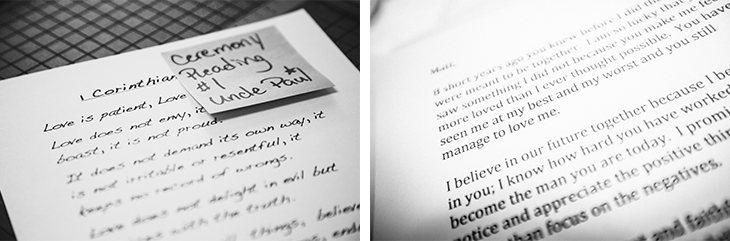 Ceremony
Reading
#1
Uncle Paul
1 Corinthian
Love is patient, Love
Love does not envy, it
boast, it is not proud.
It does not demand its own way, it
is not irritable or resentful, it
keeps no record of wrongs.
Love does not delight in evil but
with the truth.
things, believe
Matt,
8 short years ago you knew before I did th
were meant to be together. I am so lucky that
saw something I did not because you make me fe
more loved than I ever thought possible. You have
seen me at my best and my worst and you still
manage to love me.
I believe in our future together because I be
in you; I know how hard you have worked
become the man you are today. I promi
notice and appreciate the positive thin
than focus on the negatives.
and faithf